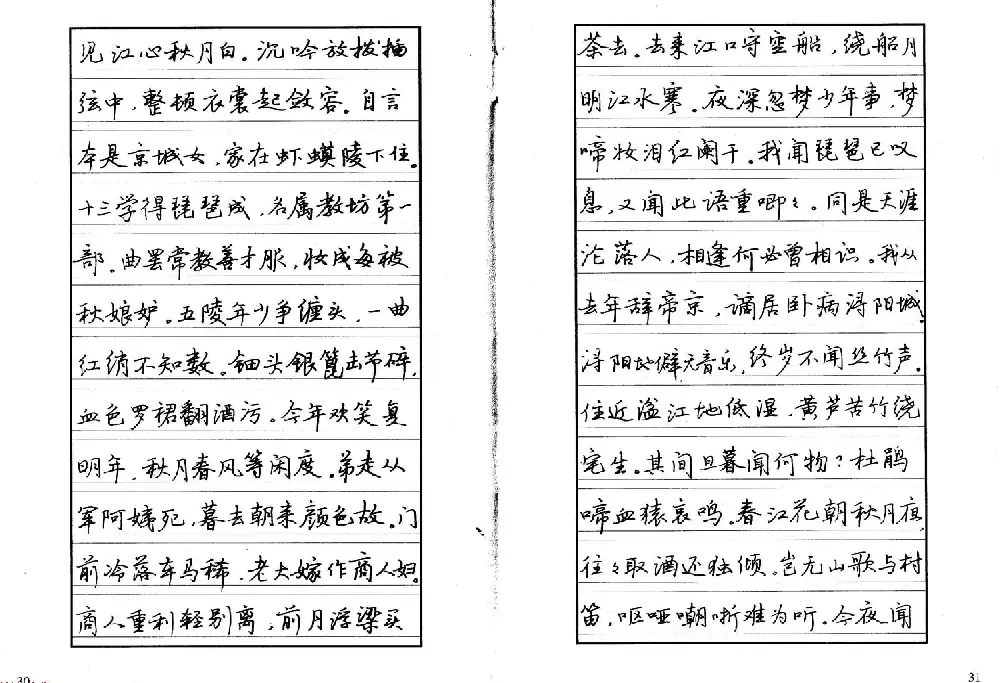 见江心秋月白。沉吟放拨插
弦中，整顿衣裳起敛容。自言
本是京城女，家在虾蟆陵下住。
十三学得琵琶成，名属教坊第一
部。曲罢常教善才服，妆成每被
秋娘妒。五陵年少争缠头，一曲
红绡不知数。钿头银篦击节碎，
血色罗裙翻酒污。今年欢笑复
明年，秋月春风等闲度。弟走从
军阿姨死，暮去朝来颜色故。门
前冷落车马稀，老大嫁作商人妇。
商人重利轻别离，前月浮梁买
30
茶去。去来江口守空船，绕船月
明江水寒。夜深忽梦少年事，梦
啼妆泪红阑干。我闻琵琶已叹
息，又闻此语重唧々。同是天涯
沦落人，相逢何必曾相识。我从
去年辞帝京，谪居卧病浔阳城。
浔阳地僻无音乐，终岁不闻丝竹声。
住近湓江地低湿，黄芦苦竹绕
宅生。其间旦暮闻何物？杜鹃
啼血猿哀鸣。春江花朝秋月夜，
往々取酒还独倾。岂无山歌与村
笛，呕哑嘲哳难为听。今夜闻
31